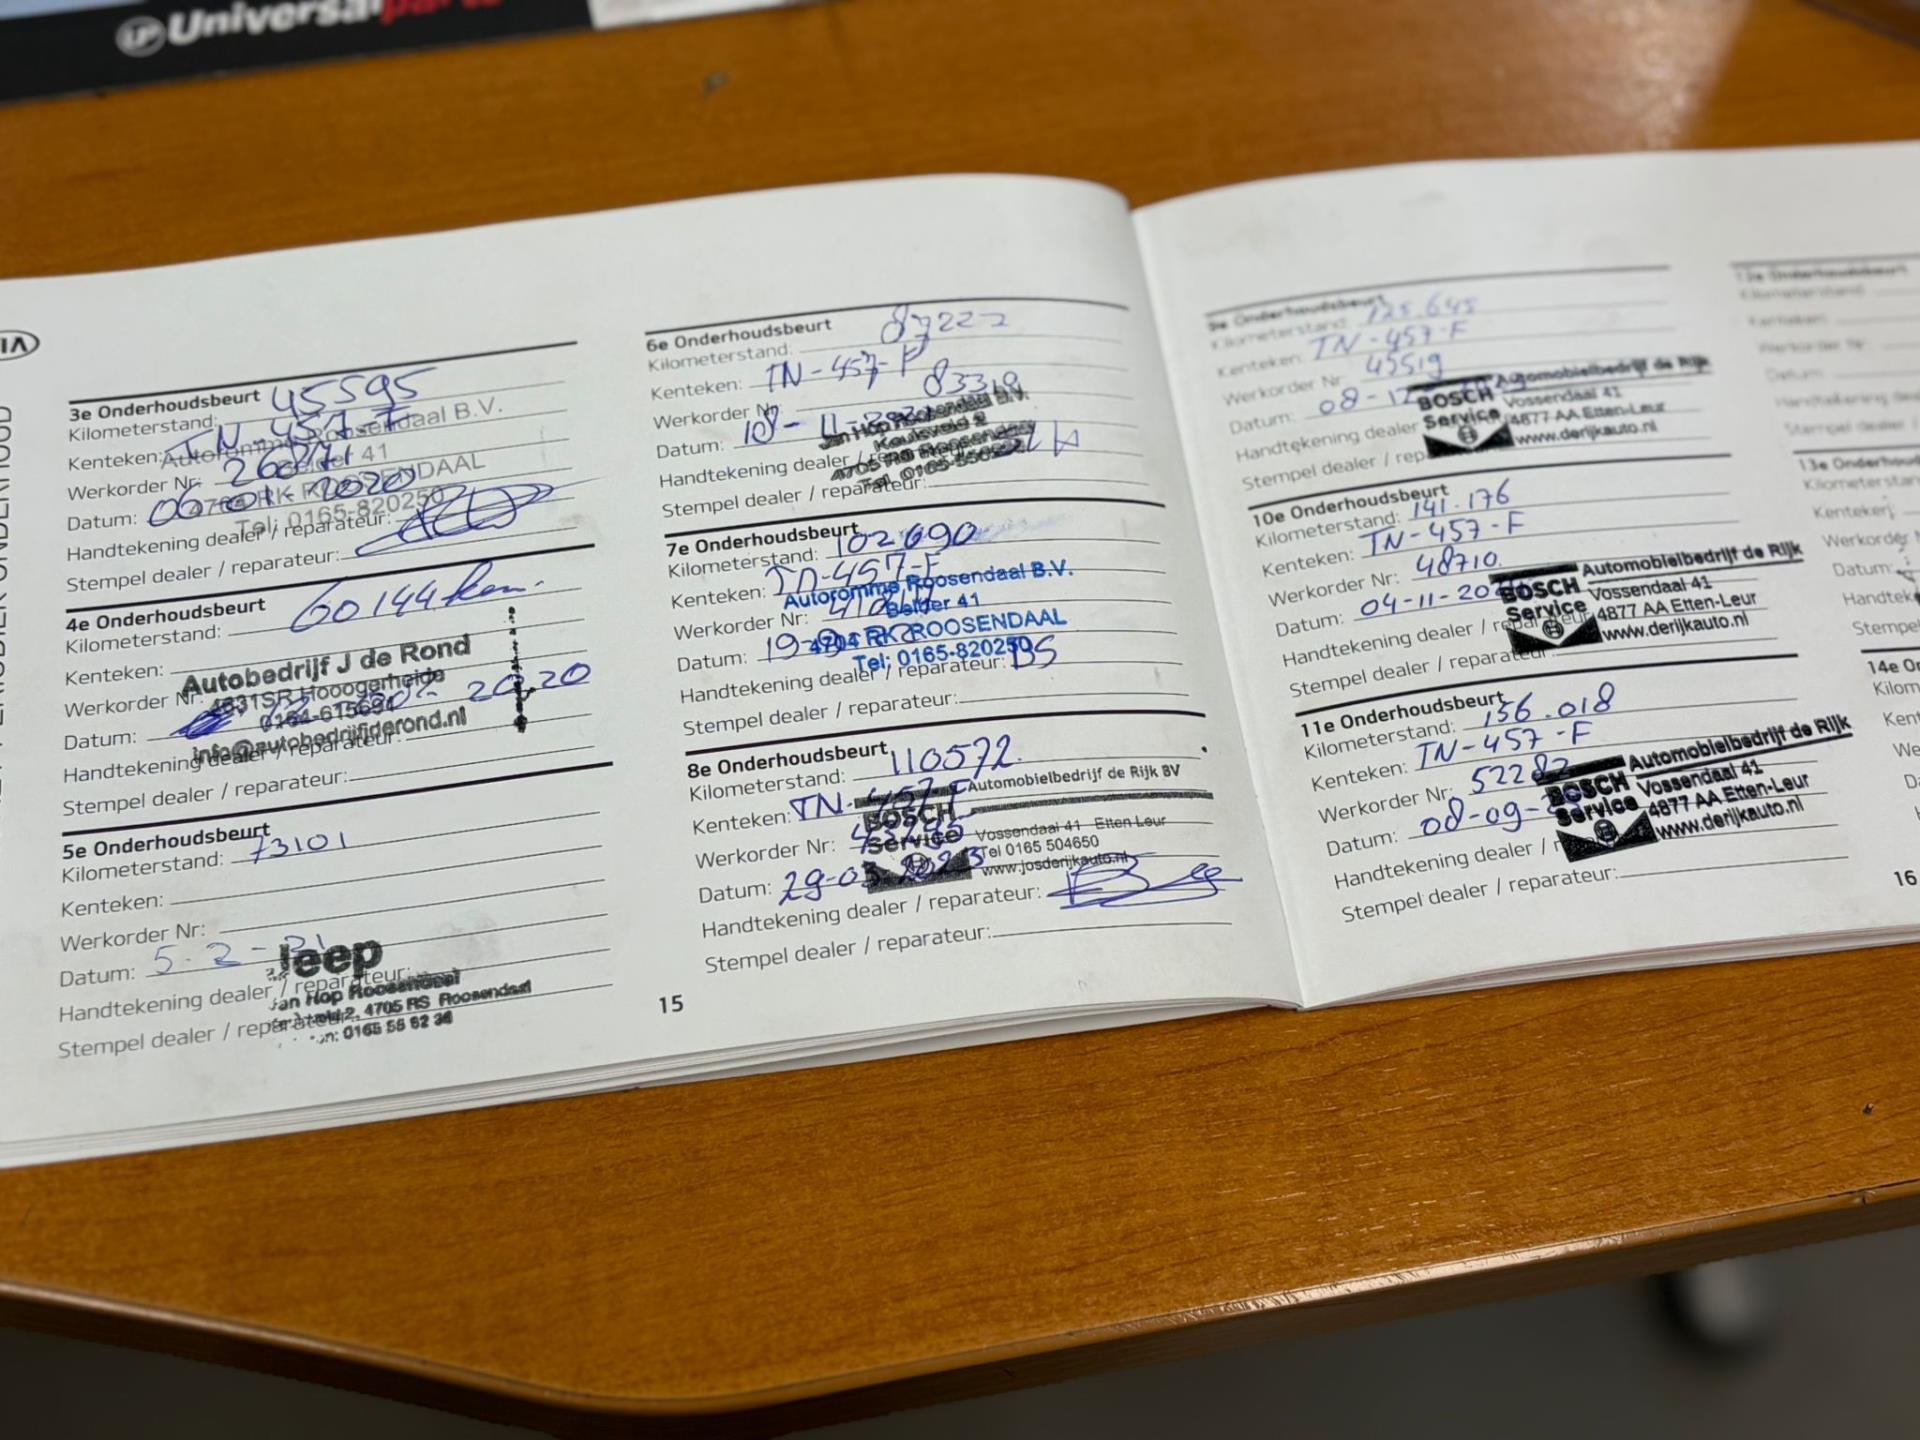 Universalparts
KIA
3e Onderhoudsbeurt
Kilometerstand: 45595
Kenteken: TN-457-F
Werkorder Nr:
Datum: 06-01-2020
Handtekening dealer / reparateur:
Stempel dealer / reparateur:
Autoromme Roosendaal B.V.
Belder 41
4704 RK ROOSENDAAL
Tel; 0165-820250
4e Onderhoudsbeurt
Kilometerstand: 60144 km.
Kenteken:
Werkorder Nr:
Datum: 2020
Handtekening dealer / reparateur:
Stempel dealer / reparateur:
Autobedrijf J de Rond
4631SR Hooogerheide
info@autobedrijfjderond.nl
5e Onderhoudsbeurt
Kilometerstand: 73101
Kenteken:
Werkorder Nr:
Datum: 5-2-21
Handtekening dealer / reparateur:
Stempel dealer / reparateur:
Jeep
Jan Hop Roosendaal
2, 4705 RS Roosendaal
6e Onderhoudsbeurt
Kilometerstand: 87222
Kenteken: TN-457-F
Werkorder Nr: 83318
Datum: 18-11-2021
Handtekening dealer / reparateur:
Stempel dealer / reparateur:
Jan Hop Roosendaal B.V.
7e Onderhoudsbeurt
Kilometerstand: 102690
Kenteken: TN-457-F
Werkorder Nr:
Datum:
Handtekening dealer / reparateur: BS
Stempel dealer / reparateur:
Autoromme Roosendaal B.V.
Belder 41
4704 RK ROOSENDAAL
Tel; 0165-820250
8e Onderhoudsbeurt
Kilometerstand: 110572.
Kenteken: TN-457-F
Werkorder Nr:
Datum: 29-03-2023
Handtekening dealer / reparateur:
Stempel dealer / reparateur:
BOSCH
Service
Automobielbedrijf de Rijk BV
Vossendaal 41 Etten Leur
Tel 0165 504650
www.josderijkauto.nl
15
9e Onderhoudsbeurt
Kilometerstand: 125.645
Kenteken: TN-457-F
Werkorder Nr: 45519
Datum: 08-12-
Handtekening dealer
Stempel dealer / rep
BOSCH
Service
Automobielbedrijf de Rijk
Vossendaal 41
4877 AA Etten-Leur
www.derijkauto.nl
10e Onderhoudsbeurt
Kilometerstand: 141.176
Kenteken: TN-457-F
Werkorder Nr: 48710.
Datum: 04-11-20
Handtekening dealer / reparateur:
Stempel dealer / reparateur:
BOSCH
Service
Automobielbedrijf de Rijk
Vossendaal 41
4877 AA Etten-Leur
www.derijkauto.nl
11e Onderhoudsbeurt
Kilometerstand: 156.018
Kenteken: TN-457-F
Werkorder Nr: 52282
Datum: 08-09-
Handtekening dealer / r
Stempel dealer / reparateur:
BOSCH
Service
Automobielbedrijf de Rijk
Vossendaal 41
4877 AA Etten-Leur
www.derijkauto.nl
12e Onderhoudsbeurt
Kilometerstand
Kenteken:
Werkorder Nr:
Datum:
13e Onderhoudsbeu
Kilometerstand:
Kenteken:
Werkorder N
Datum:
Handteke
Stempel
14e On
Kilom
Kent
We
Da
16